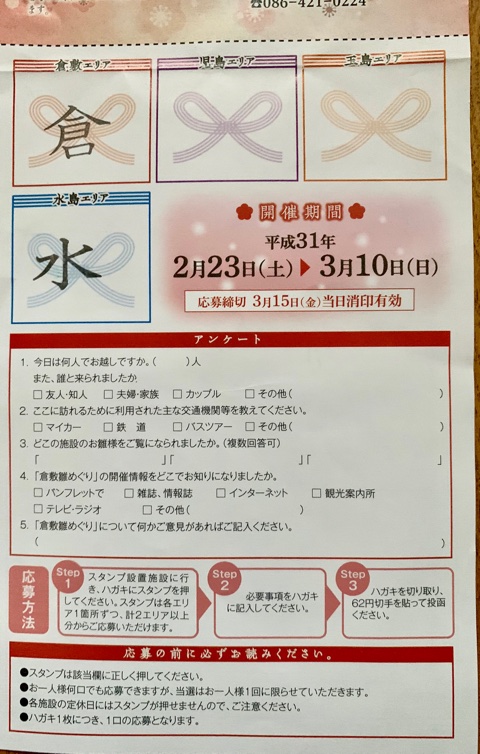 ます
☎086-421-0224
倉敷エリア
児島エリア
玉島エリア
倉
水島エリア
水
開催期間
平成31年
2月23日(土)▶3月10日(日)
応募締切 3月15日(金)当日消印有効
アンケート
1. 今日は何人でお越しですか。( )人
また、誰と来られましたか
□ 友人・知人 □ 夫婦・家族 □ カップル □ その他( )
2. ここに訪れるために利用された主な交通機関等を教えてください。
□ マイカー □ 鉄 道 □ バスツアー □ その他( )
3. どこの施設のお雛様をご覧になられましたか。(複数回答可)
「 」「 」「 」
4. 「倉敷雛めぐり」の開催情報をどこでお知りになりましたか。
□ パンフレットで □ 雑誌、情報誌 □ インターネット □ 観光案内所
□ テレビ・ラジオ □ その他( )
5. 「倉敷雛めぐり」について何かご意見があればご記入ください。
( )
応募方法
Step 1
スタンプ設置施設に行
き、ハガキにスタンプを押
してください。スタンプは各エリ
ア1箇所ずつ、計2エリア以上
分からご応募いただけます。
Step 2
必要事項をハガキ
に記入してください。
Step 3
ハガキを切り取り、
62円切手を貼って投函
ください。
応募の前に必ずお読みください。
●スタンプは該当欄に正しく押してください。
●お一人様何口でも応募できますが、当選はお一人様1回に限らせていただきます。
●各施設の定休日にはスタンプが押せませんので、ご注意ください。
●ハガキ1枚につき、1口の応募となります。